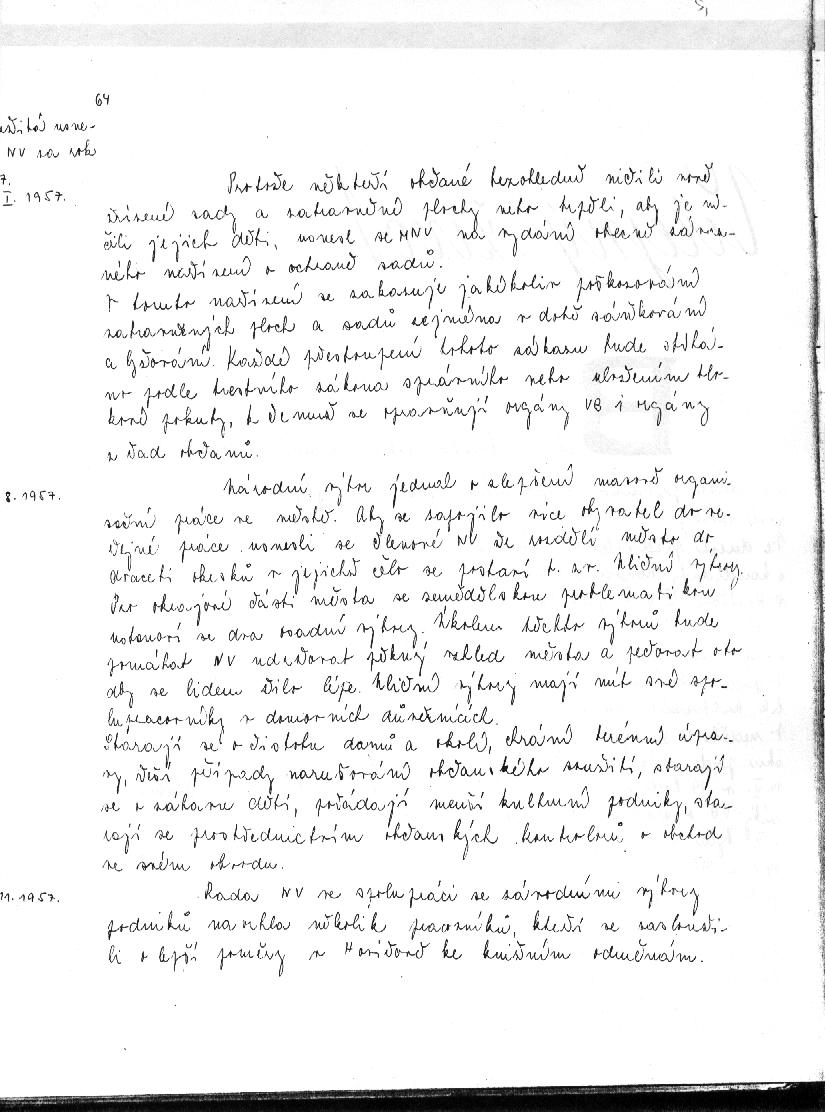 64
usne-
NV za rok
7.
I. 1957.
Protože někteří občané bezohledně ničili nově
zřízené sady a zatravněné plochy nebo trpěli, aby je ni-
čili jejich děti, usnesl se MNV na vydání obecně závaz-
ného nařízení o ochraně sadů.
V tomto nařízení se zakazuje jakékoliv poškozování
zatravněných ploch a sadů zejména v době sáňkování
a lyžování. Každé přestoupení tohoto zákazu bude stíhá-
no podle trestního zákona správního nebo uložením blo-
kové pokuty, k čemuž se opravňují orgány VB i orgány
z řad občanů.
8. 1957.
Národní výbor jednal o zlepšení masově organi-
zační práce ve městě. Aby se zapojilo více obyvatel do ve-
řejné práce usnesli se členové NV že rozdělí město do
dvaceti okrsků v jejichž čelo se postaví t. zv. uliční výbory.
Pro okrajové části města se zemědělskou problematikou
ustanoví se dva osadní výbory. Úkolem těchto výborů bude
pomáhat NV udržovat pěkný vzhled města a pečovat oto
aby se lidem žilo lépe. Uliční výbory mají mít své spo-
lupracovníky v domovních důvěrnících.
Starají se o čistotu domů a okolí, chrání terénní úpra-
vy, řeší případy narušování občanského soužití, starají
se o zábavu dětí, pořádají menší kulturní podniky, sta-
rají se prostřednictvím občanských kontrolorů o obchod
ve svém obvodu.
11. 1957.
Rada NV ve spolupráci se závodními výbory
podniků navrhla několik pracovníků, kteří se zaslouži-
li o lepší poměry v Nordově ke knižním odměnám.